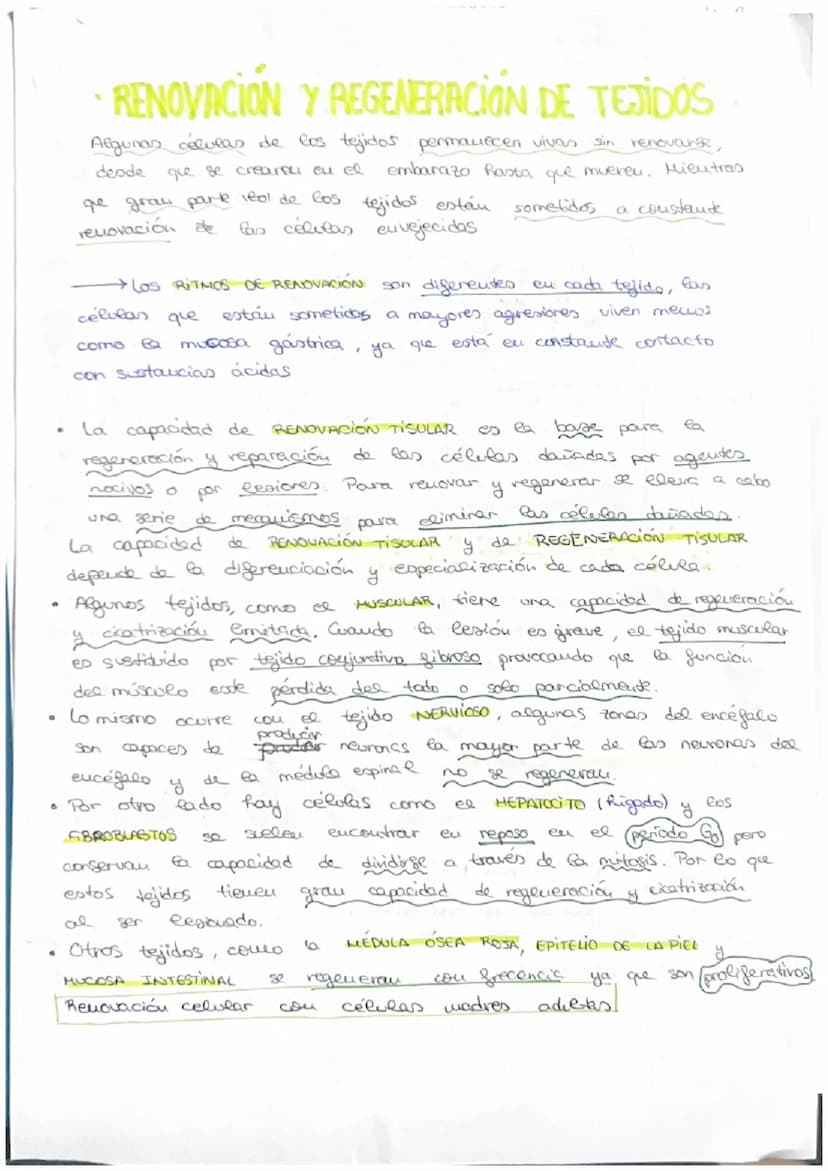 · RENOVACIÓN Y REGENERACIÓN DE TEJIDOS
Algunas células de los tejidos permanecen vivas sin renovarse,
desde que se crearon en el embarazo hasta que mueren. Mientras
que gran parte de los tejidos están sometidos a constante
renovación de las células envejecidas
→ Los RITMOS DE RENOVACIÓN son diferentes en cada tejido, las
células que están sometidas a mayores agresiones viven menos
como la mucosa gástrica, ya que está en constante contacto
con sustancias ácidas
• La capacidad de RENOVACIÓN TISULAR es la base para la
regeneración y reparación de las células dañadas por agentes
nocivos o por lesiones. Para renovar y regenerar se lleva a cabo
una serie de mecanismos para eliminar las células dañadas.
La capacidad de RENOVACIÓN TISULAR y de REGENERACIÓN TISULAR
depende de la diferenciación y especialización de cada célula.
• Algunos tejidos, como el MUSCULAR, tiene una capacidad de regeneración
y cicatrización limitada. Cuando la lesión es grave, el tejido muscular
es sustituido por tejido conjuntivo fibroso provocando que la función
del músculo este pérdida del todo o solo parcialmente.
• Lo mismo ocurre con el tejido NERVIOSO, algunas zonas del encéfalo
son capaces de producir neuronas la mayor parte de las neuronas del
encéfalo y de la médula espinal no se regeneran.
• Por otro lado hay células como el HEPATOCITO (hígado) y los
FIBROBLASTOS se suelen encontrar en reposo en el período G0 pero
conservan la capacidad de dividirse a través de la mitosis. Por lo que
estos tejidos tienen gran capacidad de regeneración y cicatrización
al ser lesionado.
• Otros tejidos, como la MÉDULA ÓSEA ROJA, EPITELIO DE LA PIEL y
MUCOSA INTESTINAL se regeneran con frecencia ya que son proliferativos
Renovación celular con células madres adultas